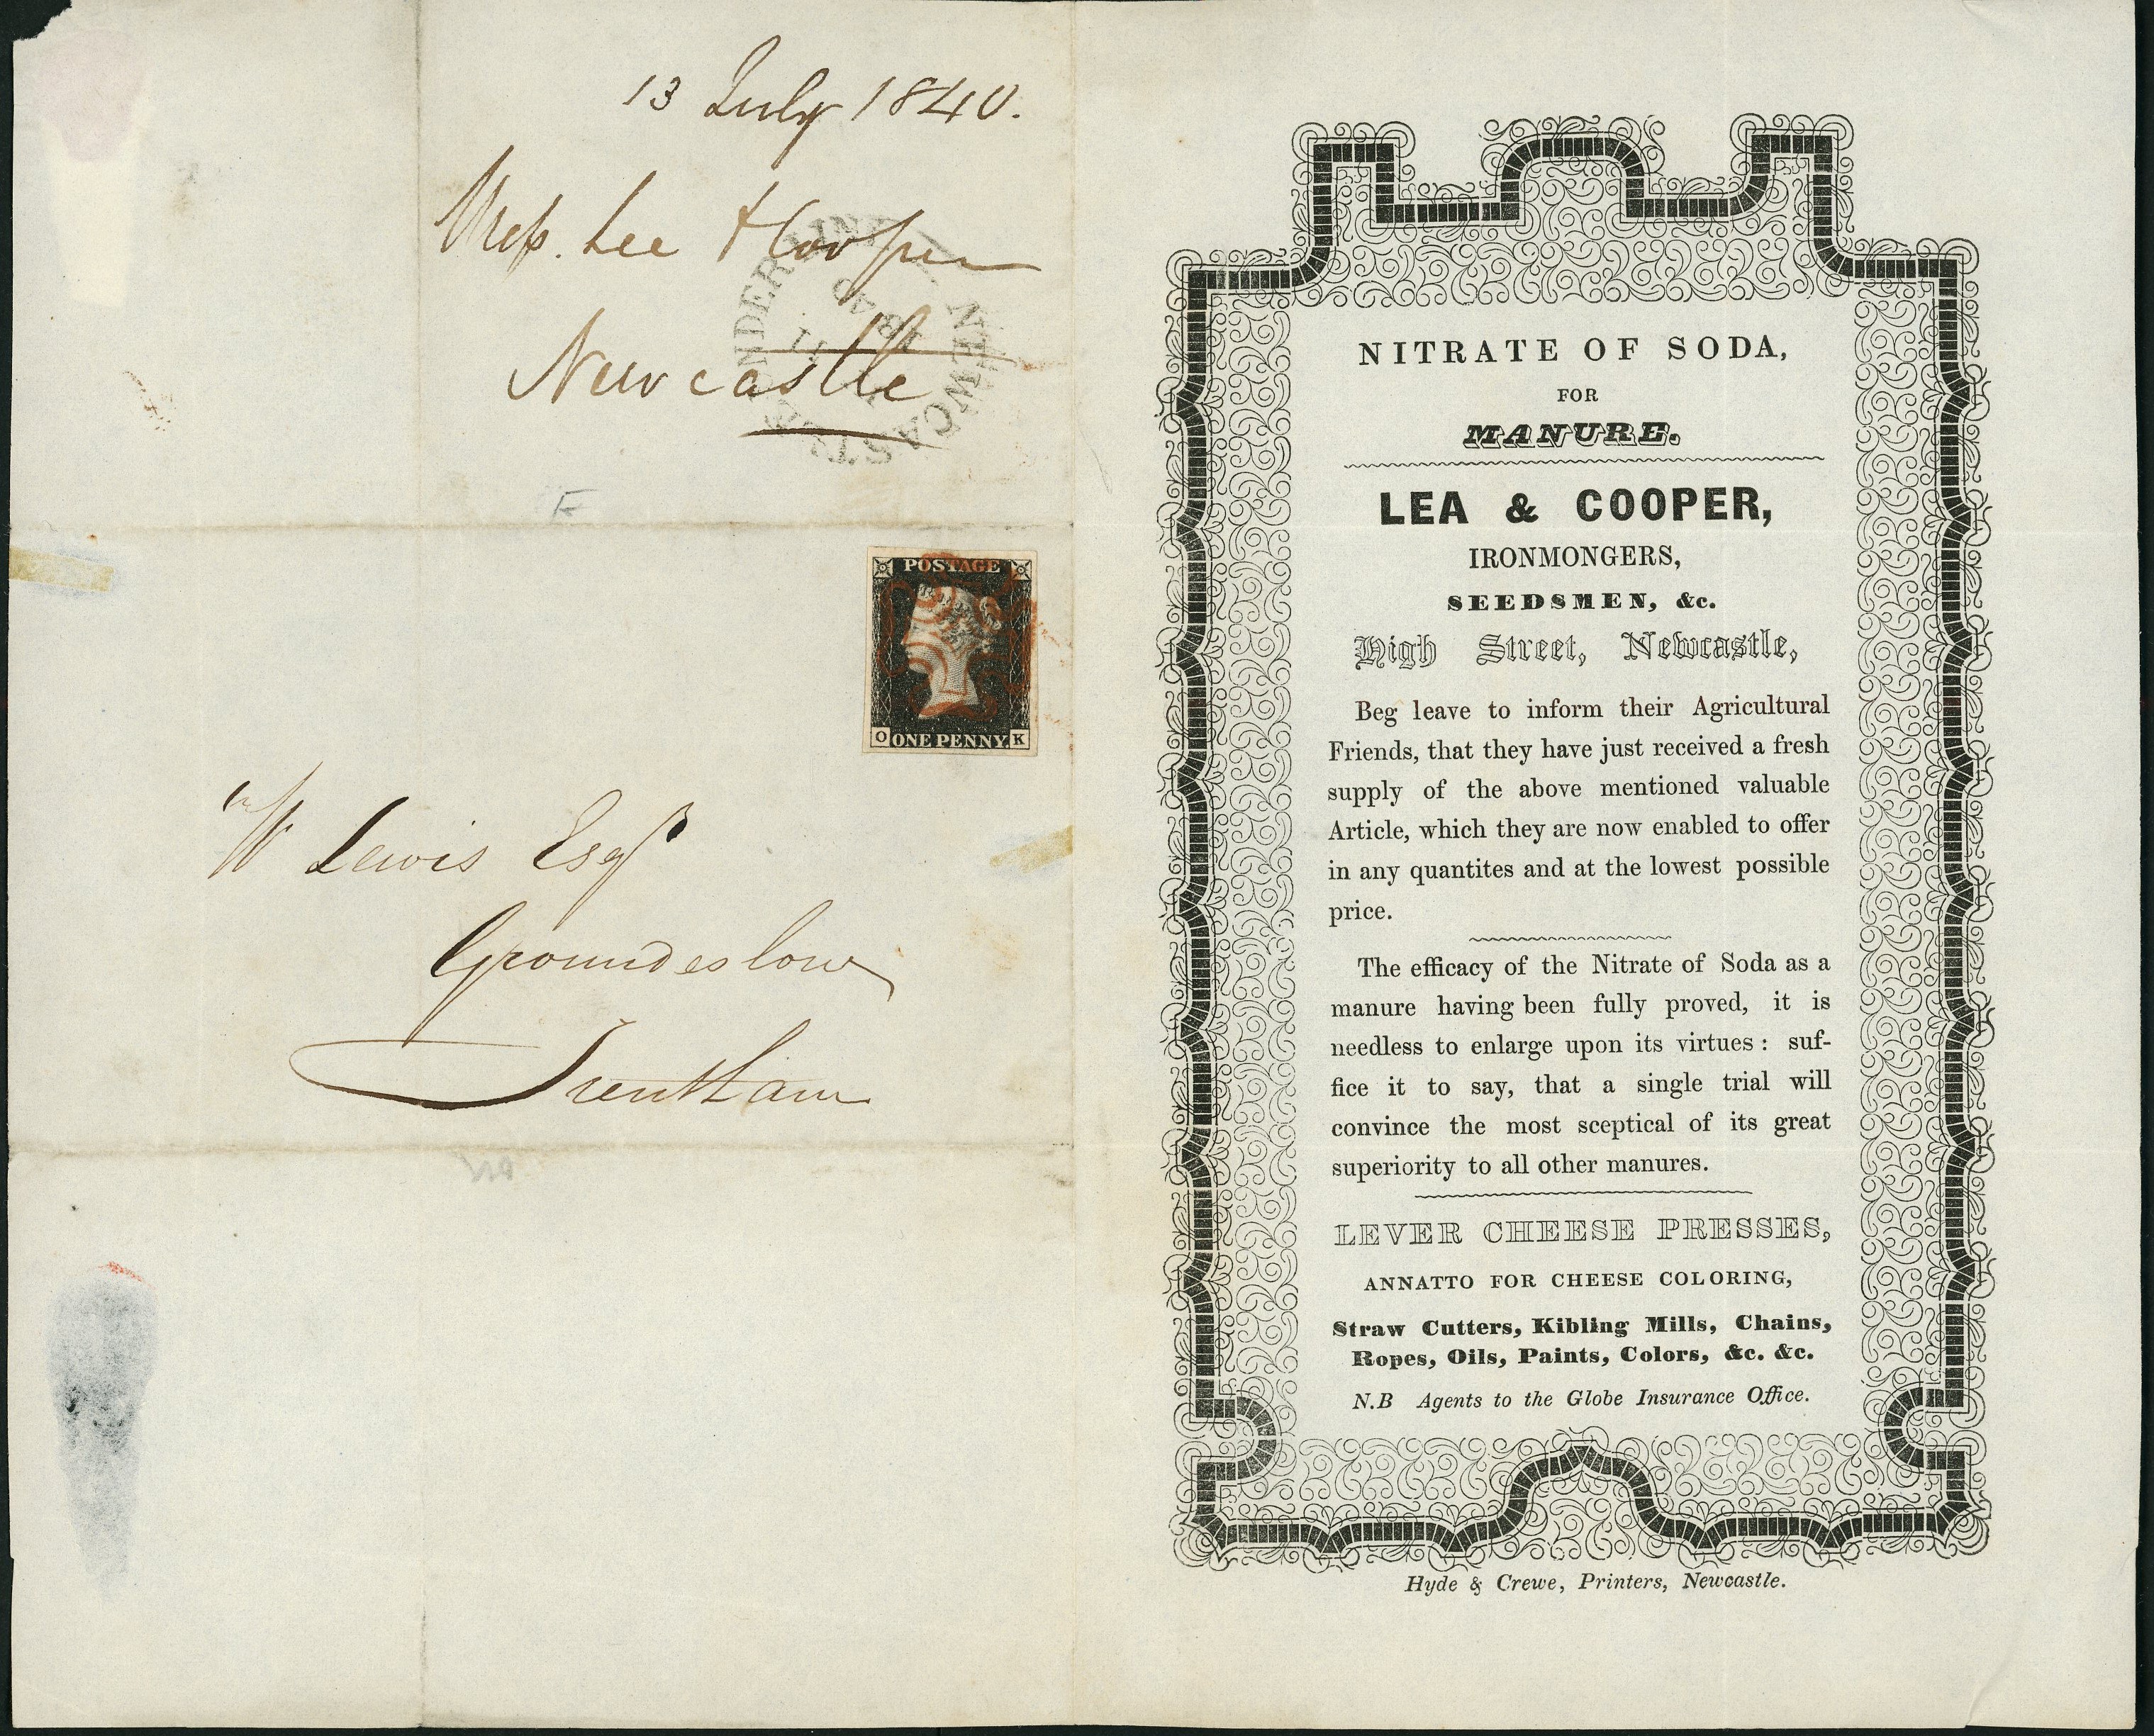 13 July 1840.
Mess. Lee & Cooper
Newcastle
NEWCASTLE UNDER LINE
1840
POSTAGE
O ONE PENNY K
W Lewis Esqr
Groundeslow
Trentham
NITRATE OF SODA,
FOR
MANURE.
LEA & COOPER,
IRONMONGERS,
SEEDSMEN, &c.
High Street, Newcastle,
Beg leave to inform their Agricultural
Friends, that they have just received a fresh
supply of the above mentioned valuable
Article, which they are now enabled to offer
in any quantites and at the lowest possible
price.
The efficacy of the Nitrate of Soda as a
manure having been fully proved, it is
needless to enlarge upon its virtues : suf-
fice it to say, that a single trial will
convince the most sceptical of its great
superiority to all other manures.
LEVER CHEESE PRESSES,
ANNATTO FOR CHEESE COLORING,
Straw Cutters, Kibling Mills, Chains,
Ropes, Oils, Paints, Colors, &c. &c.
N.B Agents to the Globe Insurance Office.
Hyde & Crewe, Printers, Newcastle.